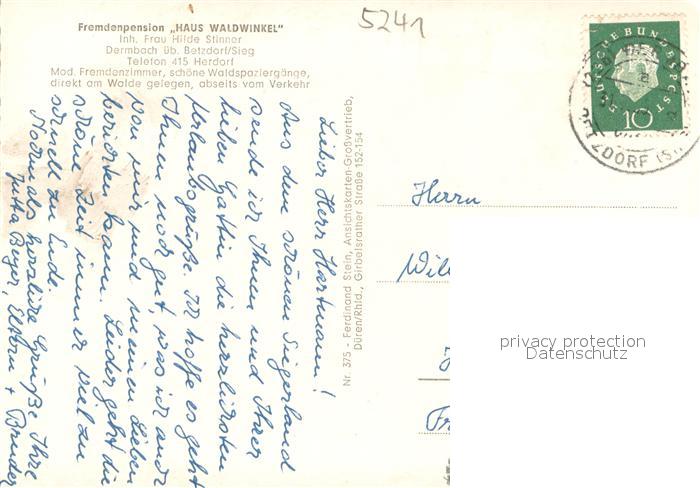 5241
Fremdenpension „HAUS WALDWINKEL"
Inh. Frau Hilde Stinner
Dermbach üb. Betzdorf/Sieg
Telefon 415 Herdorf
Mod. Fremdenzimmer, schöne Waldspaziergänge,
direkt am Walde gelegen, abseits vom Verkehr
Lieber Herr Hartmann!
Aus dem schönen Siegerland
sende ich Ihnen und Ihrer
lieben Gattin die herzlichsten
Urlaubsgrüße. Ich hoffe es geht
Ihnen noch gut, was ich auch
von mir und meinen Lieben
berichten kann. Leider geht die
schöne Zeit immer viel zu
schnell zu Ende.
Nochmals herzliche Grüße Ihre
Jutta Beyer, Eltern + Bruder
Nr. 375 - Ferdinand Stein, Ansichtskarten-Großvertrieb,
Düren/Rhld., Girbelsrather Straße 152-154
DEUTSCHE BUNDESPOST
10
BETZDORF (S
Herrn
Wil
Fr
privacy protection
Datenschutz